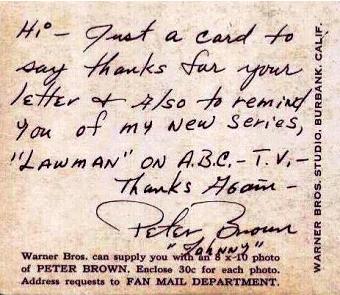 Hi - Just a card to
say thanks for your
letter & Also to remind
you of my new series,
"LAWMAN" ON A.B.C. - T.V. -
Thanks Again -
Peter Brown
"Johnny"
Warner Bros. can supply you with an 8 x 10 photo
of PETER BROWN. Enclose 30c for each photo.
Address requests to FAN MAIL DEPARTMENT.
WARNER BROS. STUDIO. BURBANK. CALIF.